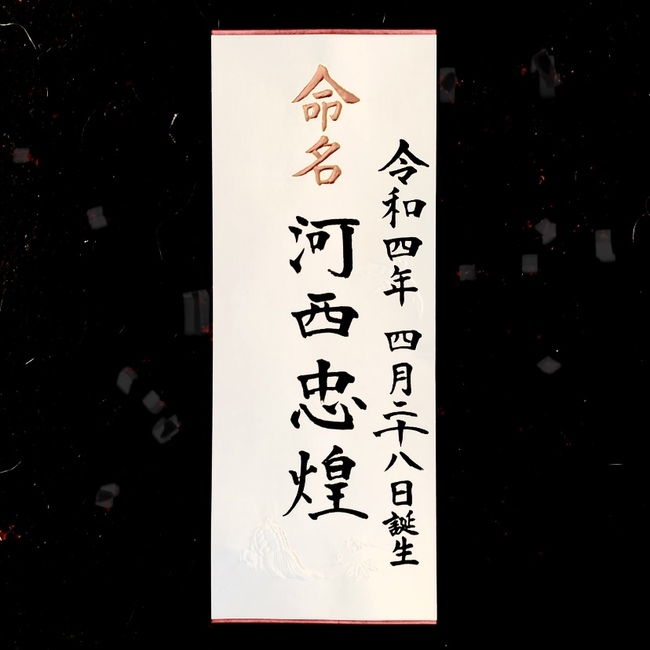 令和四年 四月二十八日誕生
命名
河西忠煌